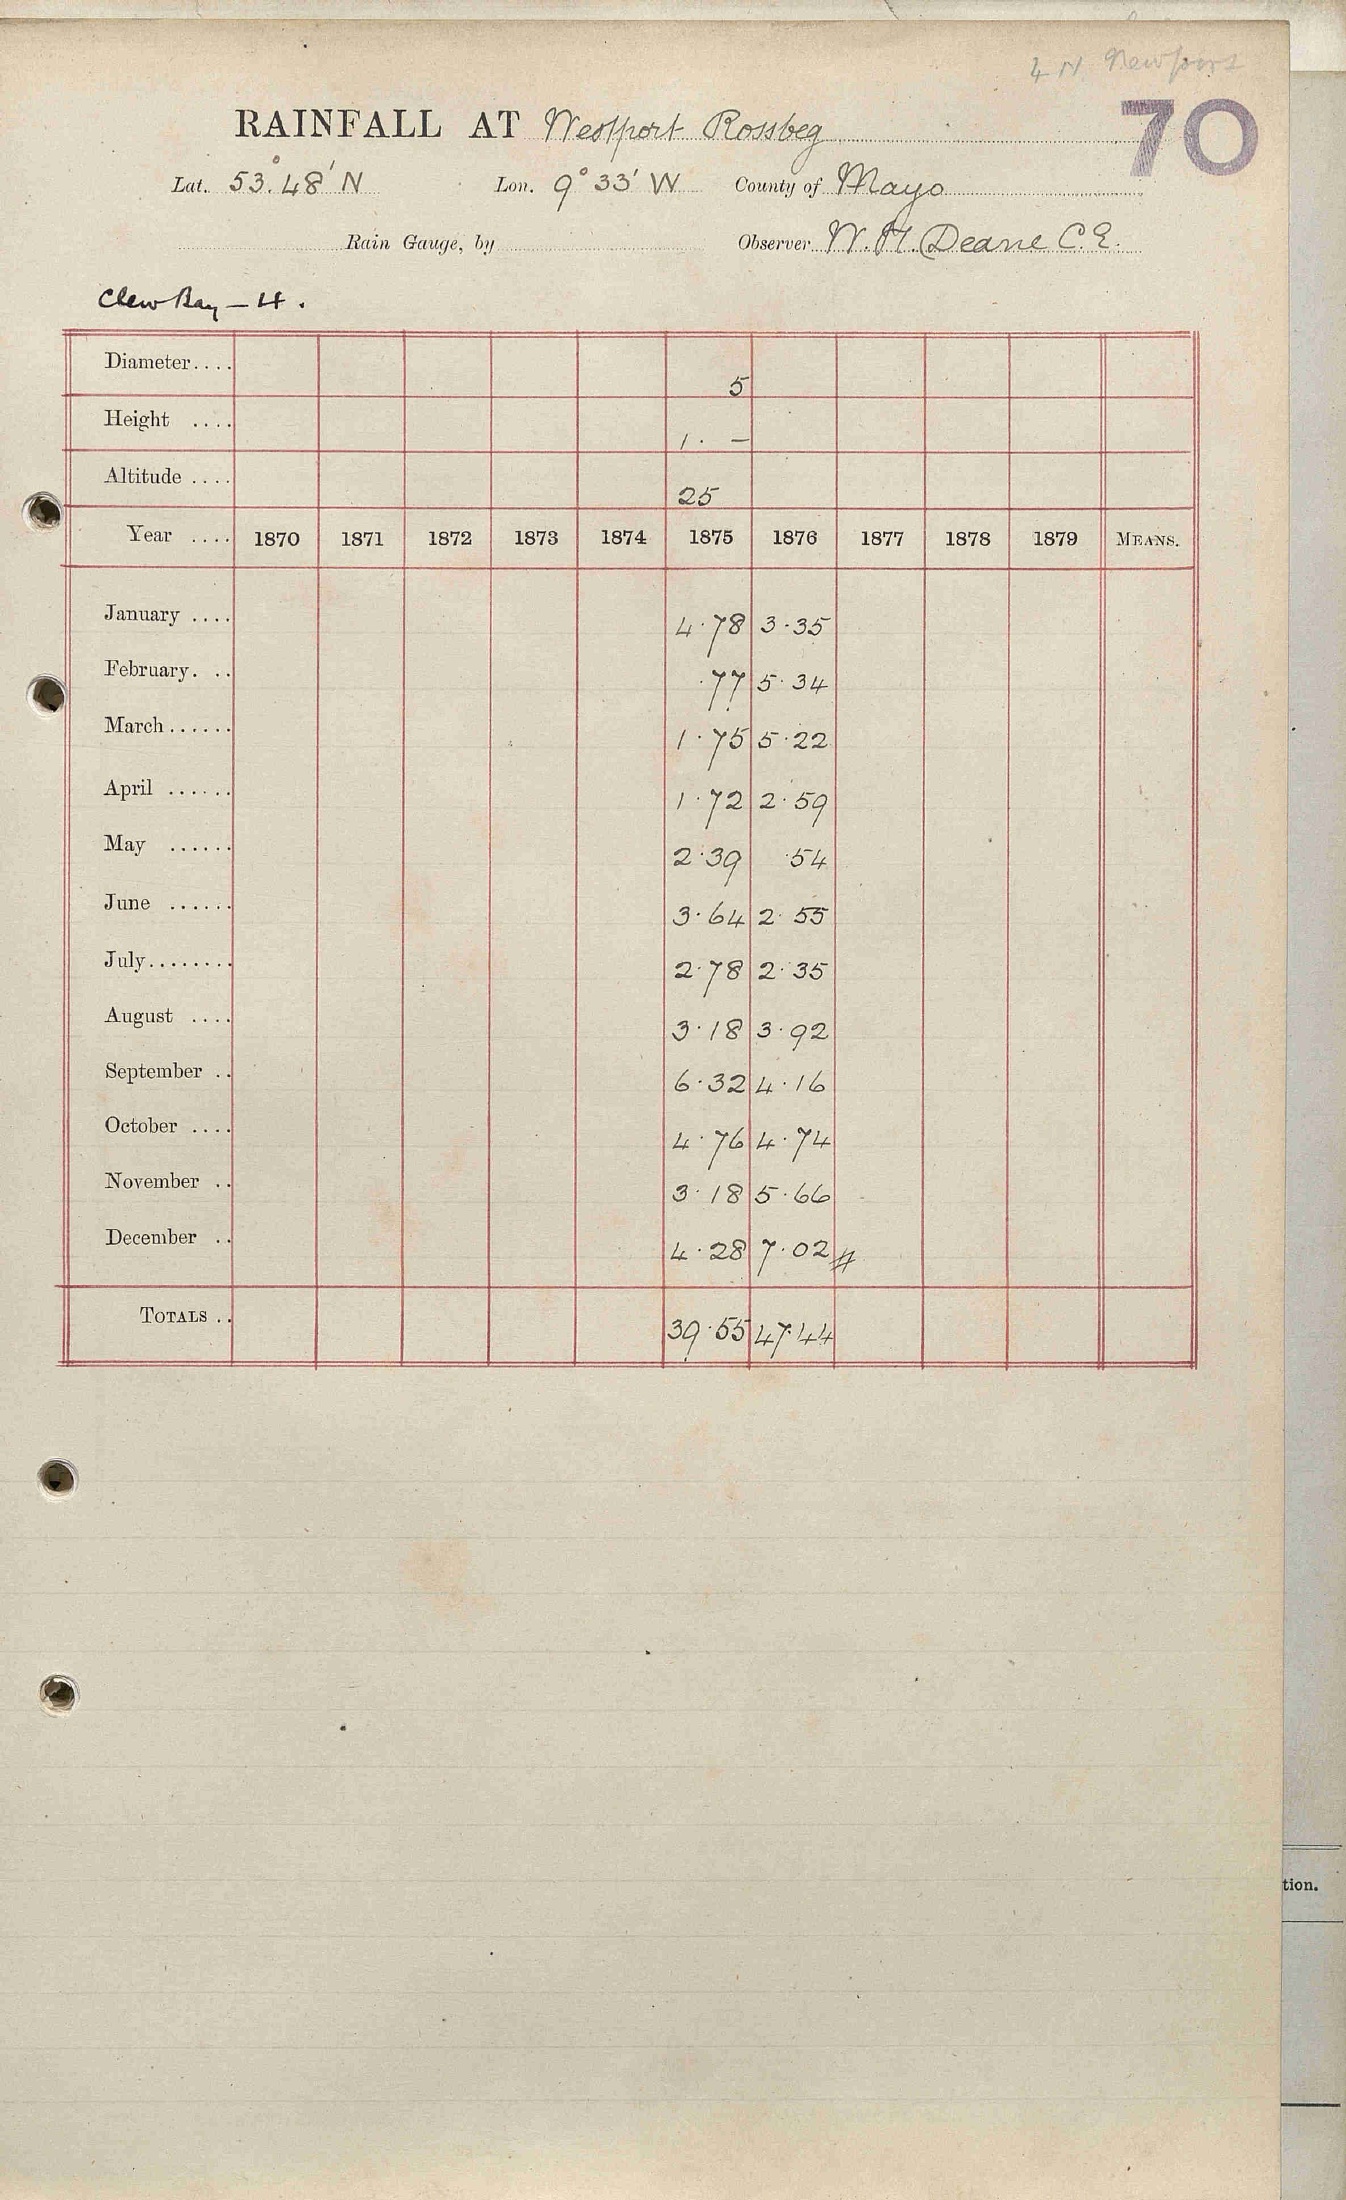 4 N. Newport
70
RAINFALL AT Westport Rossbeg
Lat. 53°.48' N Lon. 9°33' W County of Mayo
Rain Gauge, by Observer W. H. Deane C.E.
Clew Bay - H.
Diameter.... 5
Height .... 1 · —
Altitude .... 25
Year .... 1870 1871 1872 1873 1874 1875 1876 1877 1878 1879 MEANS.
January .... 4·78 3·35
February. .. ·77 5·34
March...... 1·75 5·22
April ...... 1·72 2·59
May ...... 2·39 ·54
June ...... 3·64 2·55
July........ 2·78 2·35
August .... 3·18 3·92
September .. 6·32 4·16
October .... 4·76 4·74
November .. 3·18 5·66
December .. 4·28 7·02 #
TOTALS .. 39·55 47·44
tion.